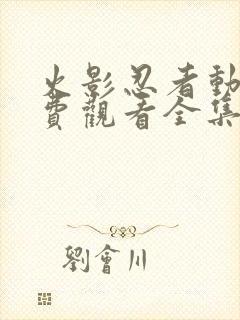 火影忍者動
費觀看全集
劉會川